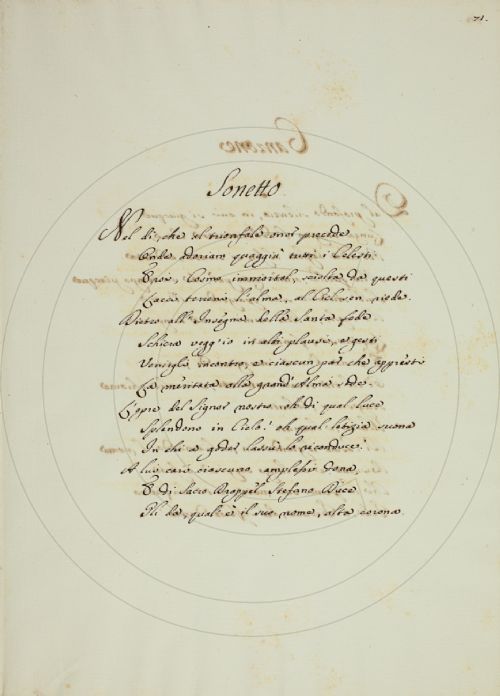 71.
Sonetto
Nel dì, che il trionfale onor precede
Onde adoriam quaggiù tutti i Celesti
Eroi, Cosmo immortal, sciolta da questi
Lacci terreni l'alma, al Ciel sen riede.
Dietro all'Insegna della Santa fede
Schiera vegg'io in alti plausi, e gesti
Venirgli incontro, e ciascun par che appresti
La meritata alla grand'Alma sede.
L'opre del Signor nostro oh di qual luce
Splendono in Cielo! oh qual letizia suona
In chi a goder lassù lo riconduce!
A lui cari ciascuno amplessi dona,
E di Sacro Drappel Stefano Duce
Gli dà, qual'è il suo nome, alta corona.
Canzone